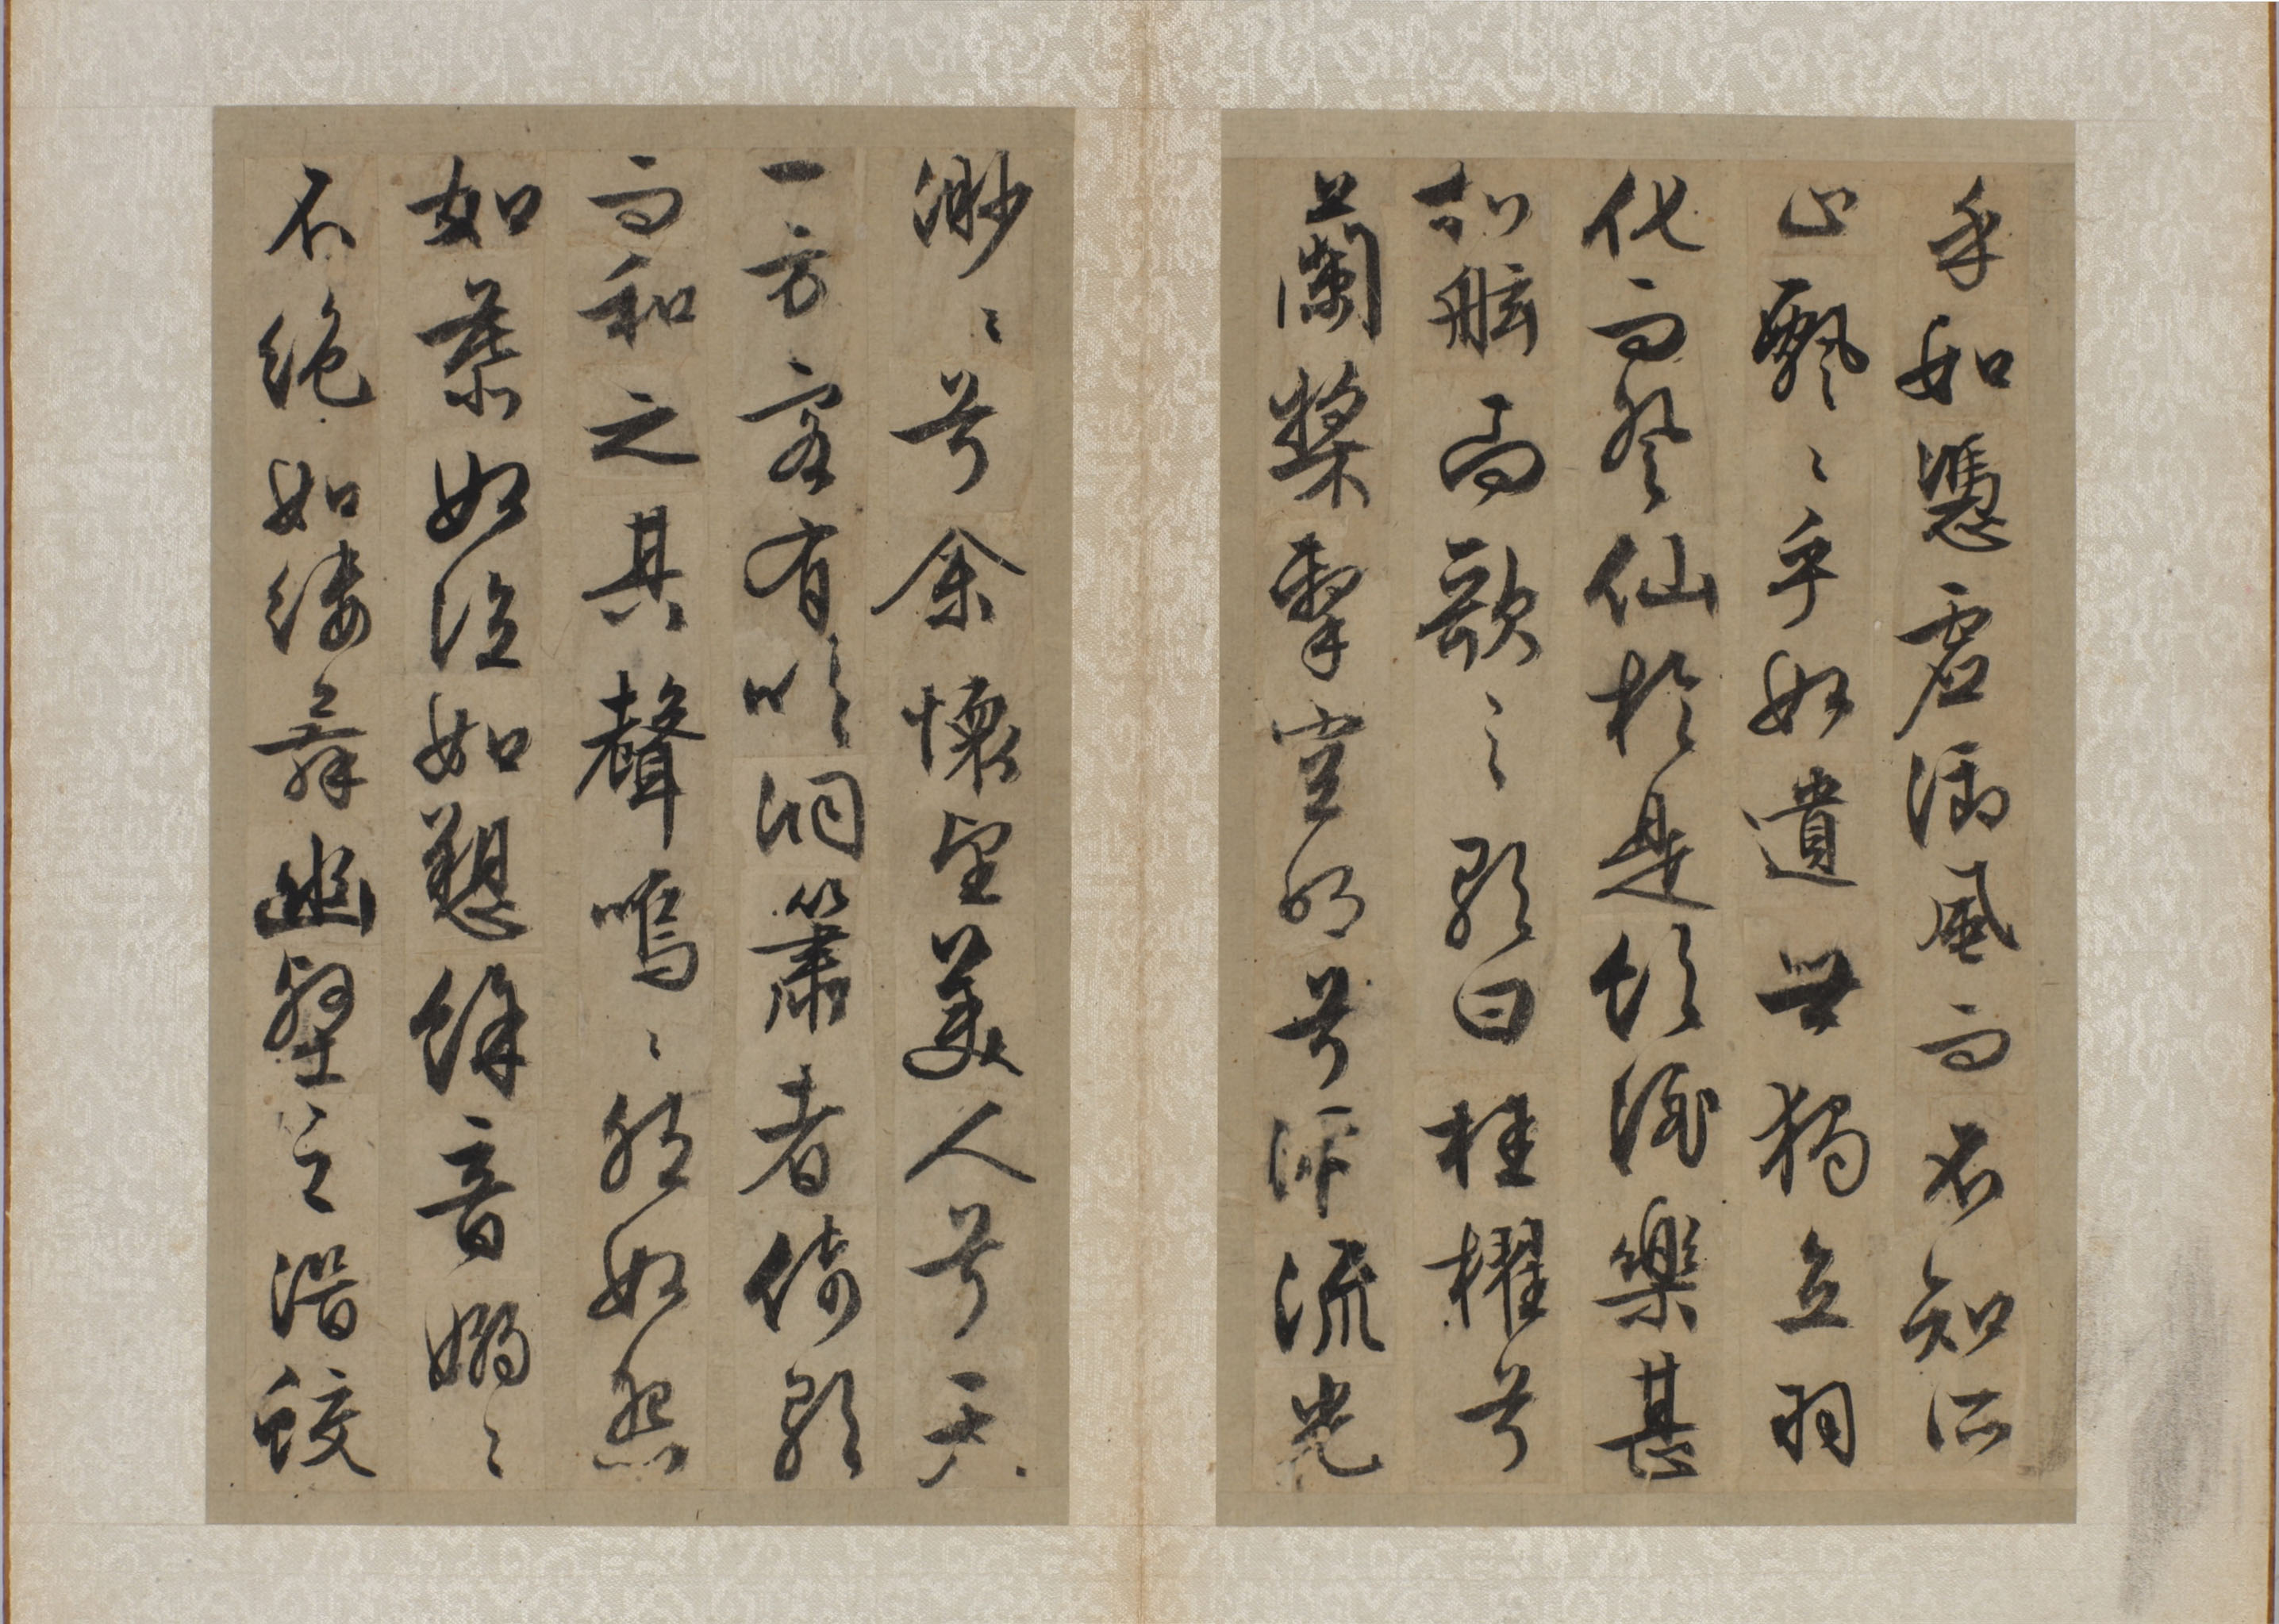 乎如憑虛御風而不知所
止飄〻乎如遺世獨立羽
化而登仙於是飲酒樂甚
扣舷而歌之歌曰桂櫂兮
蘭槳擊空明兮泝流光
渺〻兮余懷望美人兮天
一方客有吹洞簫者倚歌
而和之其聲嗚〻然如怨
如慕如泣如愬餘音嫋〻
不絕如縷舞幽壑之潛蛟